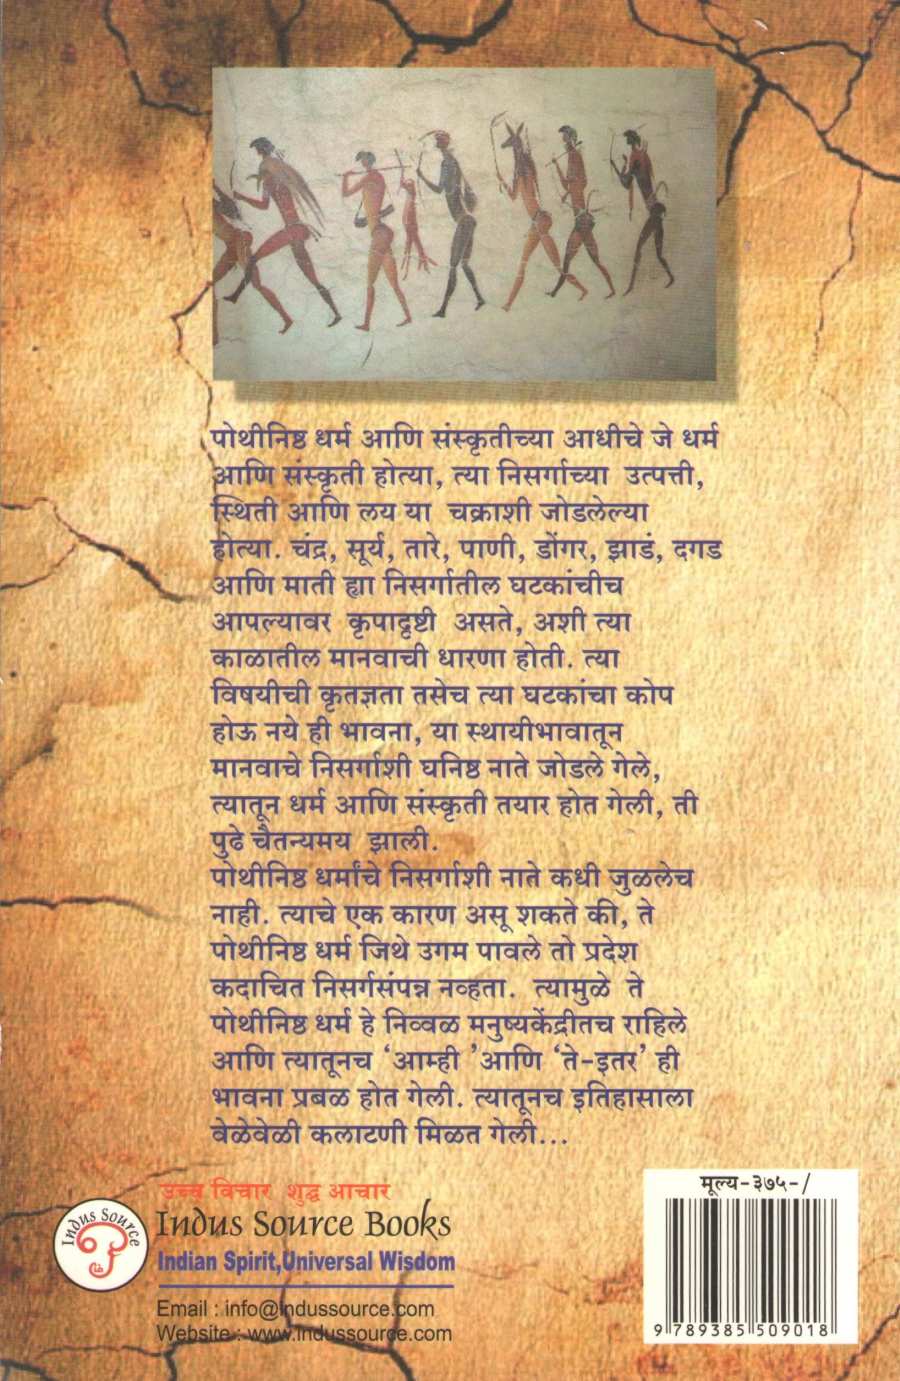 पोथीनिष्ठ धर्म आणि संस्कृतीच्या आधीचे जे धर्म
आणि संस्कृती होत्या, त्या निसर्गाच्या उत्पत्ती,
स्थिती आणि लय या चक्राशी जोडलेल्या
होत्या. चंद्र, सूर्य, तारे, पाणी, डोंगर, झाडं, दगड
आणि माती ह्या निसर्गातील घटकांचीच
आपल्यावर कृपादृष्टी असते, अशी त्या
काळातील मानवाची धारणा होती. त्या
विषयीची कृतज्ञता तसेच त्या घटकांचा कोप
होऊ नये ही भावना, या स्थायीभावातून
मानवाचे निसर्गाशी घनिष्ठ नाते जोडले गेले,
त्यातून धर्म आणि संस्कृती तयार होत गेली, ती
पुढे चैतन्यमय झाली.
पोथीनिष्ठ धर्मांचे निसर्गाशी नाते कधी जुळलेच
नाही. त्याचे एक कारण असू शकते की, ते
पोथीनिष्ठ धर्म जिथे उगम पावले तो प्रदेश
कदाचित निसर्गसंपन्न नव्हता. त्यामुळे ते
पोथीनिष्ठ धर्म हे निव्वळ मनुष्यकेंद्रीतच राहिले
आणि त्यातूनच ‘आम्ही ’आणि ‘ते-इतर’ ही
भावना प्रबळ होत गेली. त्यातूनच इतिहासाला
वेळेवेळी कलाटणी मिळत गेली...
मूल्य-३७५-/
उच्च विचार शुद्ध आचार
Indus Source
Indus Source Books
Indian Spirit,Universal Wisdom
Email : info@indussource.com
Website : www.indussource.com
9 789385 509018